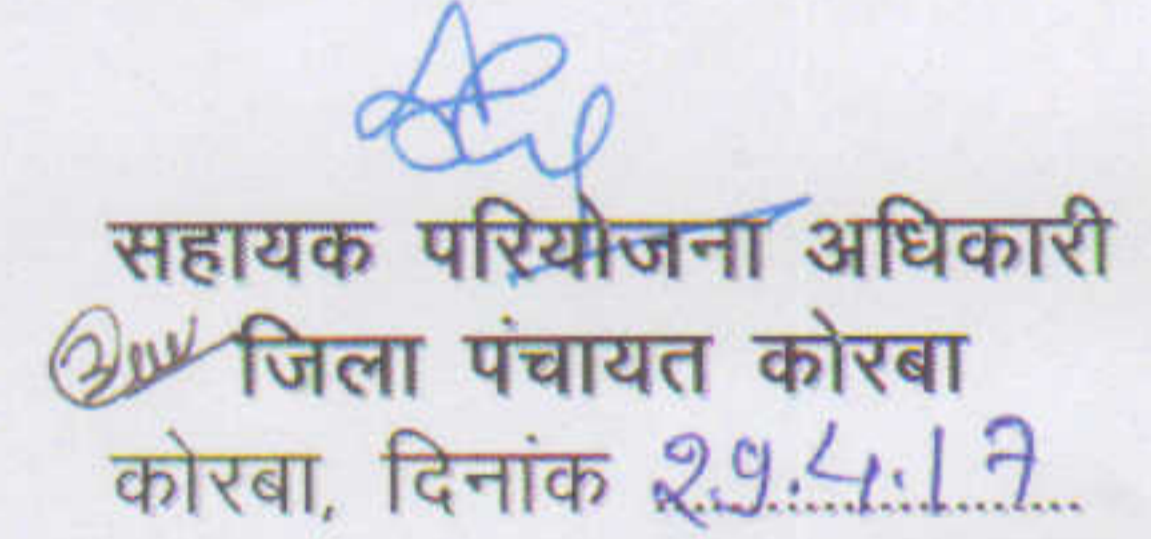 सहायक परियोजना अधिकारी
जिला पंचायत कोरबा
कोरबा, दिनांक 29.4.17